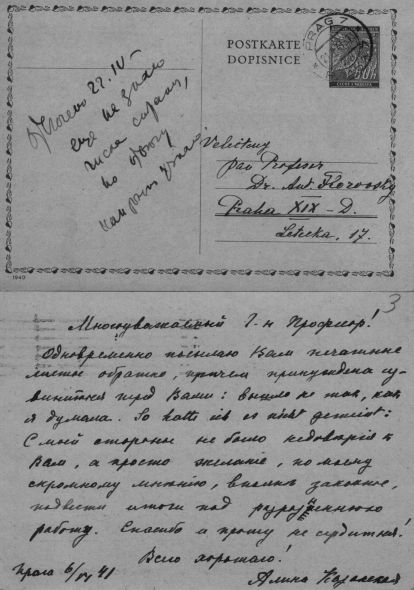 POSTKARTE
DOPISNICE
PRAG 7
60h
22.IV
еще не знаю
числа
по
Velectěný
pan Profesor
Dr. Ant. Florovský
Praha XIX - D.
Letecka, 17.
1940
3
Многоуважаемый Г-н Профессор!
Одновременно посылаю Вам печатные
листы обратно, причем принуждена из-
виниться пред Вами: вышло не так, как
я думала. So hatte ich es nicht gemeint:
С моей стороны не было недоверия к
Вам, а просто желание, по моему
скромному мнению, вполне законное,
подвести итоги под разрозненную
работу. Спасибо и прошу не сердиться!
Всего хорошего!
Прага 6/IV 41
Алина